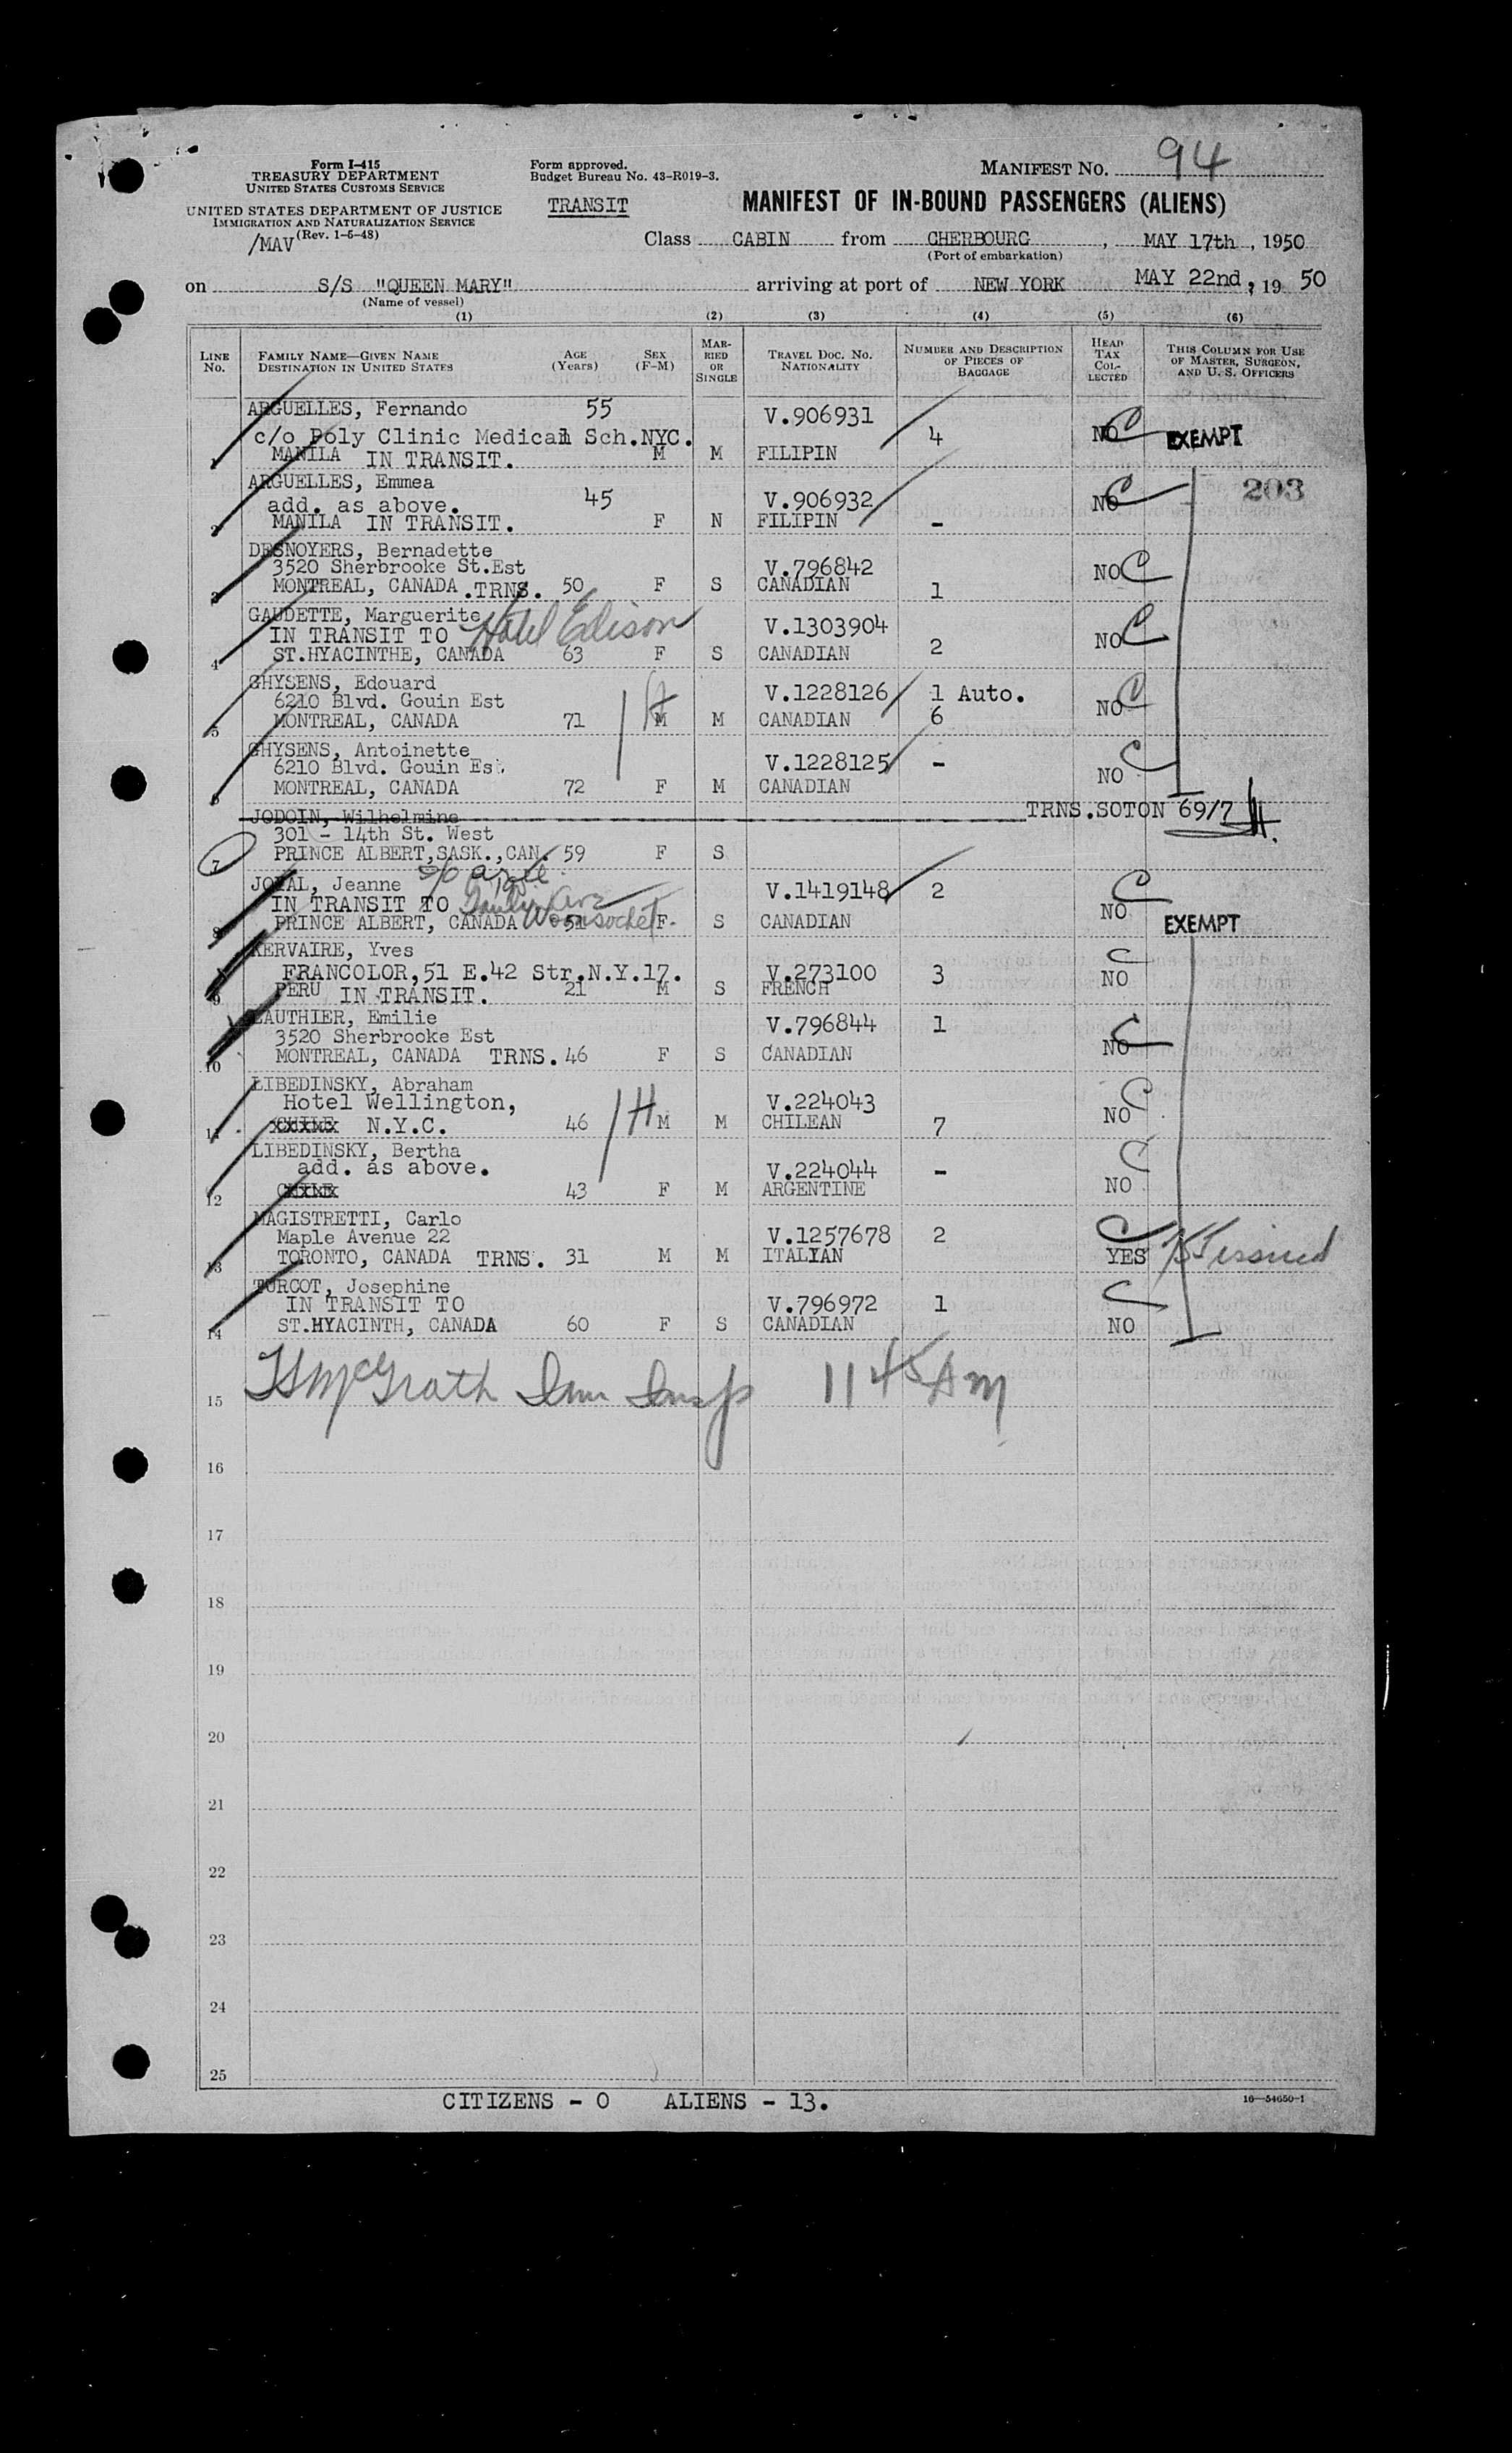 Form I-415
TREASURY DEPARTMENT
UNITED STATES CUSTOMS SERVICE
UNITED STATES DEPARTMENT OF JUSTICE
IMMIGRATION AND NATURALIZATION SERVICE
(Rev. 1-6-48)
/MAV
Form approved.
Budget Bureau No. 43-R019-3.
TRANSIT
MANIFEST NO. 94
MANIFEST OF IN-BOUND PASSENGERS (ALIENS)
Class CABIN from CHERBOURG, MAY 17th, 1950
(Port of embarkation)
on S/S "QUEEN MARY" arriving at port of NEW YORK MAY 22nd, 19 50
(Name of vessel)
(1) (2) (3) (4) (5) (6)
LINE NO. FAMILY NAME—GIVEN NAME DESTINATION IN UNITED STATES AGE (Years) SEX (F-M) MARRIED OR SINGLE TRAVEL DOC. NO. NATIONALITY NUMBER AND DESCRIPTION OF PIECES OF BAGGAGE HEAD TAX COLLECTED THIS COLUMN FOR USE OF MASTER, SURGEON, AND U. S. OFFICERS
ARGUELLES, Fernando 55 V.906931
c/o Poly Clinic Medical Sch.NYC. 4 NO C EXEMPT
1 MANILA IN TRANSIT. M M FILIPIN
ARGUELLES, Emmea
203
add. as above. 45 V.906932 NO C
2 MANILA IN TRANSIT. F N FILIPIN -
DESNOYERS, Bernadette
3520 Sherbrooke St.Est V.796842 NO C
3 MONTREAL, CANADA .TRNS. 50 F S CANADIAN 1
GAUDETTE, Marguerite Hotel Edison
IN TRANSIT TO V.1303904 NO C
4 ST.HYACINTHE, CANADA 63 F S CANADIAN 2
GHYSENS, Edouard V.1228126 1 Auto.
6210 Blvd. Gouin Est NO C
5 MONTREAL, CANADA 71 M M CANADIAN 6
GHYSENS, Antoinette
6210 Blvd. Gouin Est. V.1228125 - C
6 MONTREAL, CANADA 72 F M CANADIAN NO
JODOIN, Wilhelmine TRNS.SOTON 69/7 H.
301 - 14th St. West
7 PRINCE ALBERT,SASK.,CAN. 59 F S
JOYAL, Jeanne V.1419148 2 C
IN TRANSIT TO Ave Woonsocket NO
8 PRINCE ALBERT, CANADA 51 F S CANADIAN EXEMPT
KERVAIRE, Yves C
FRANCOLOR,51 E.42 Str.N.Y.17. V.273100 3 NO
9 PERU IN TRANSIT. 21 M S FRENCH
LAUTHIER, Emilie V.796844 1
3520 Sherbrooke Est C
10 MONTREAL, CANADA TRNS. 46 F S CANADIAN NO
LIBEDINSKY, Abraham
Hotel Wellington, V.224043 C
11 CHILE N.Y.C. 46 H M M CHILEAN 7 NO
LIBEDINSKY, Bertha
add. as above. V.224044 - C
12 CHILE 43 F M ARGENTINE NO
MAGISTRETTI, Carlo
Maple Avenue 22 V.1257678 2 C
13 TORONTO, CANADA TRNS. 31 M M ITALIAN YES issued
TURCOT, Josephine
IN TRANSIT TO V.796972 1 C
14 ST.HYACINTH, CANADA 60 F S CANADIAN NO
McGrath Imm Insp 11 45 AM
15
16
17
18
19
20
21
22
23
24
25
CITIZENS - 0 ALIENS - 13.
16—54650-1